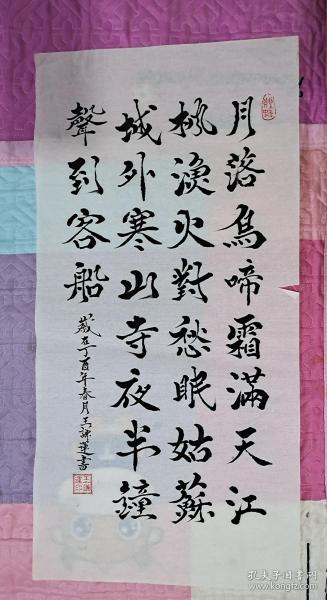 月落烏啼霜滿天江
楓漁火對愁眠姑蘇
城外寒山寺夜半鐘
聲到客船
歲在丁酉年春月王書
孔夫子旧书网
www.kongfz.com